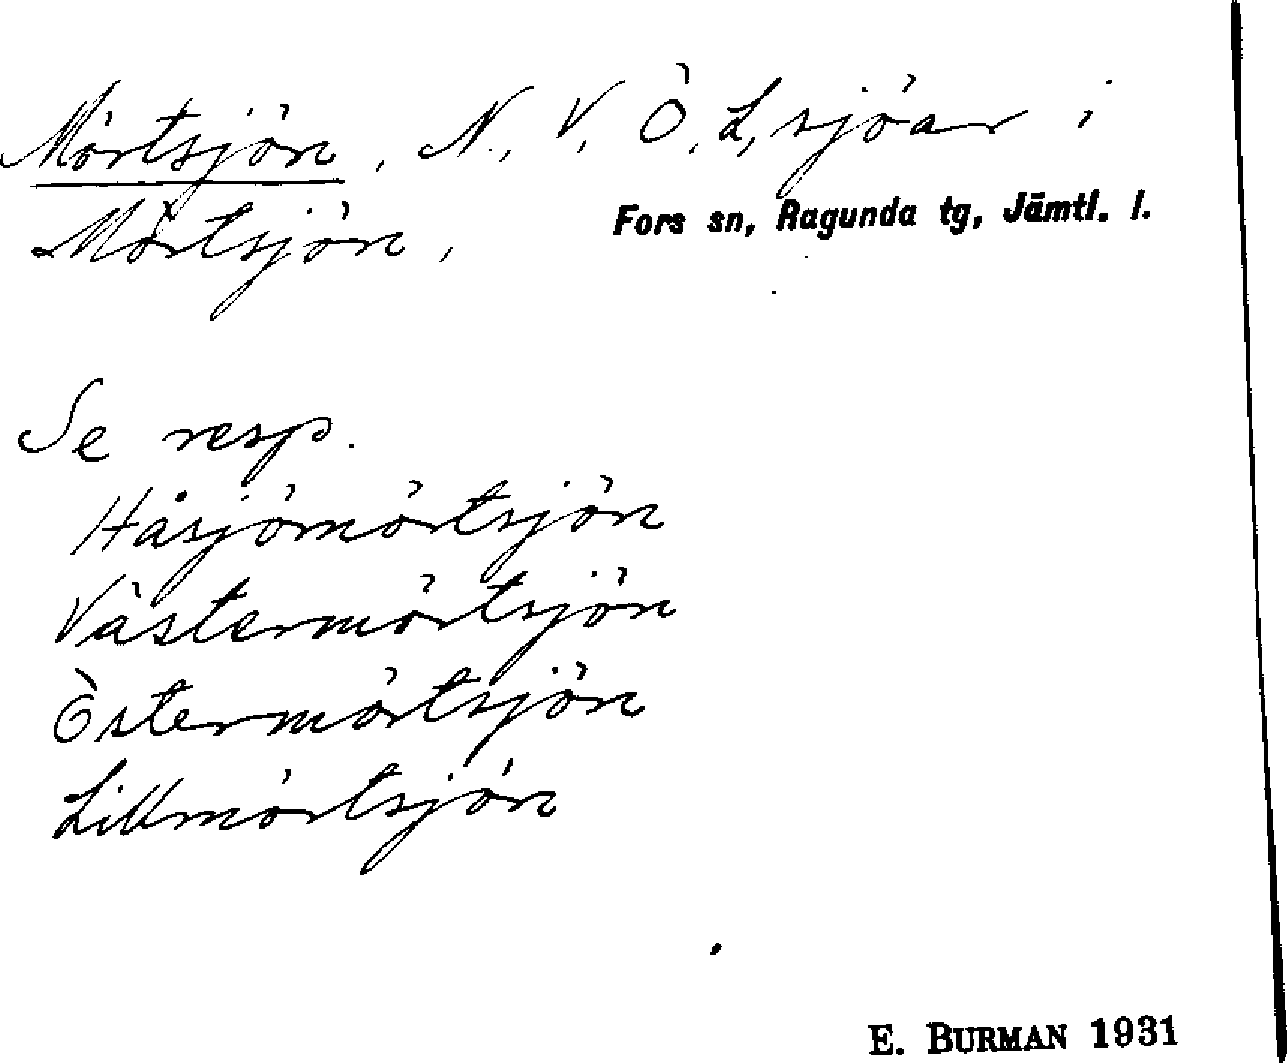 Mörtsjön, N., V, Ö, L, sjöar i
Fors sn, Ragunda tg, Jämtl. l.
Mörtsjön,
Se resp.
Håsjömörtsjön
Västermörtsjön
Östermörtsjön
Lillmörtsjön
E. BURMAN 1931